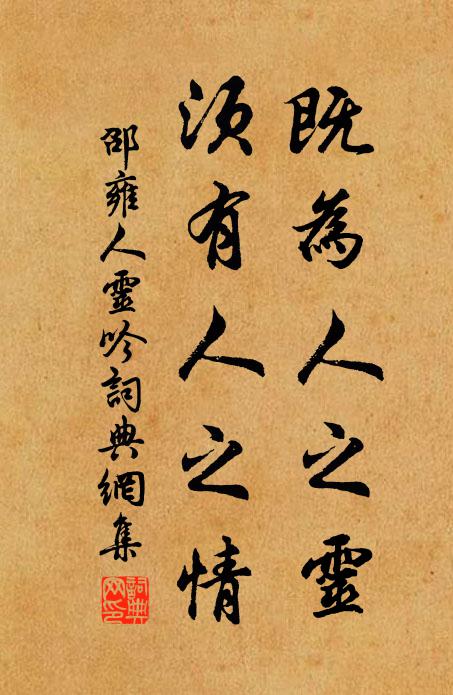 既為人之靈
須有人之情
邵雍人靈吟詞典網集
詞典
网印